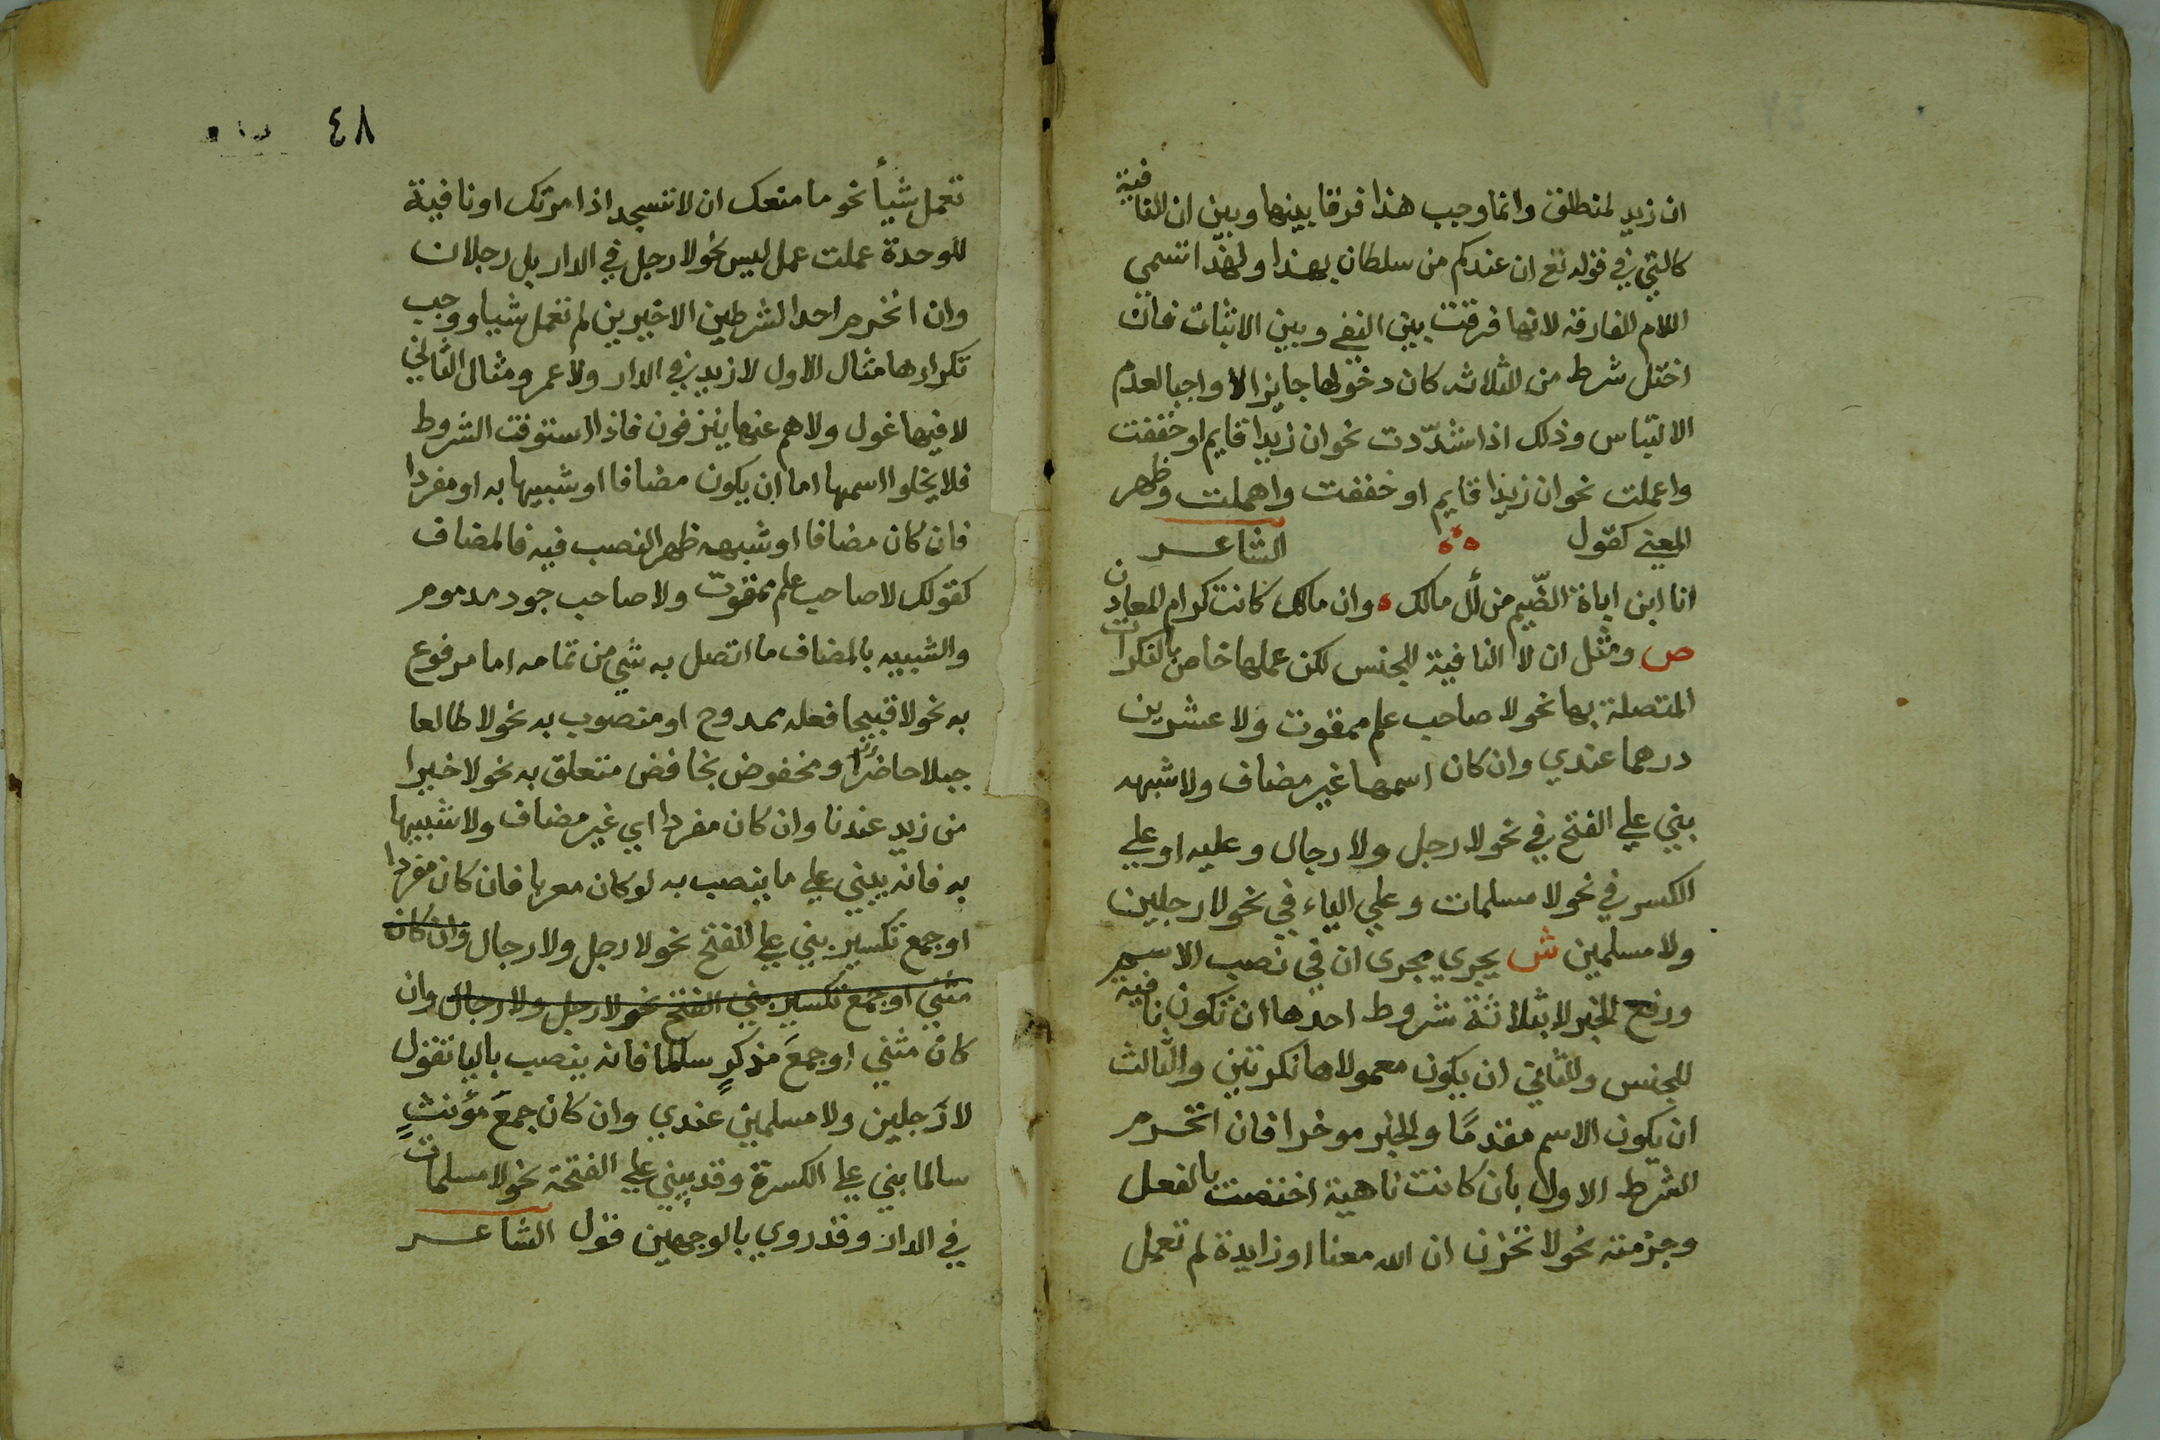 ان زيد لمنطلق وانما وجب هذا فرقا بينها وبين ان النافية
كالتي في قوله تع ان عندكم من سلطان بهذا ولهذا تسمي
اللام الفارقه لانها فرقت بين النفي وبين الاثبات فان
اختل شرط من الثلاثه كان دخولها جايزا لا واجبا لعدم
الالتباس وذلك اذا شدّدت نحو ان زيدا قايم او خففت
واعملت نحو ان زيدا قايم او خففت واهملت وظهر
المعني كقول الشاعر
انا ابن اباة الضّيم من أل مالك ه وان مالك كانت كرام المعادن
ص ومثل ان لا النافية للجنس لكن عملها خاص بالنكرات
المتصلة بها نحو لا صاحب علم ممقوت ولا عشرين
درهما عندي وان كان اسمها غير مضاف ولا شبهه
بني علي الفتح في نحو لا رجل ولا رجال وعليه او علي
الكسر في نحو لا مسلمات وعلي الياء في نحو لا رجلين
ولا مسلمين ش يجري مجرى ان في نصب الاسم
ورفع الخبر لا بثلاثة شروط احدها ان تكون نافية
للجنس والثاني ان يكون معمولاها نكرتين والثالث
ان يكون الاسم مقدمًا والخبر موخرا فان انخرم
الشرط الاول بان كانت ناهية اختصت بالفعل
وجزمته نحو لا تحزن ان الله معنا او زايدة لم تعمل
٤٨
تعمل شيأ نحو ما منعك ان لا تسجد اذ امرتك او نافية
للوحدة عملت عمل ليس نحو لا رجل في الدار بل رجلان
وان انخرم احد الشرطين الاخيرين لم تعمل شيا ووجب
تكرارها مثال الاول لا زيد في الدار ولا عمرو ومثال الثاني
لا فيها غول ولا هم عنها ينزفون فاذا استوفت الشروط
فلا يخلو اسمها اما ان يكون مضافا او شبيها به او مفردا
فان كان مضافا او شبهه ظهر النصب فيه فالمضاف
كقولك لا صاحب علم ممقوت ولا صاحب جود مدموم
والشبيه بالمضاف ما اتصل به شي من تمامه اما مرفوع
به نحو لا قبيحا فعله ممدوح او منصوب به نحو لا طالعا
جبلا حاضرًا او مخفوض بخافض متعلق به نحو لا خيرا
من زيد عندنا وان كان مفردا اي غير مضاف ولا شبيها
به فانه يبني علي ما ينصب به لو كان معربا فان كان مفردا
او جمع تكسير بني علي الفتح نحو لا رجل ولا رجال وان كان
مثني او جمع تكسير بني الفتح نحو لا رجل ولا رجال وان
كان مثني او جمعَ مذكرٍ سالما فانه ينصب باليا تقول
لا رَجلين ولا مسلمين عندي وان كان جمعَ مؤنثٍ
سالما بني علي الكسرة وقد يبني علي الفتحة نحو لا مسلمات
في الدار وقد روي بالوجهين قول الشاعر